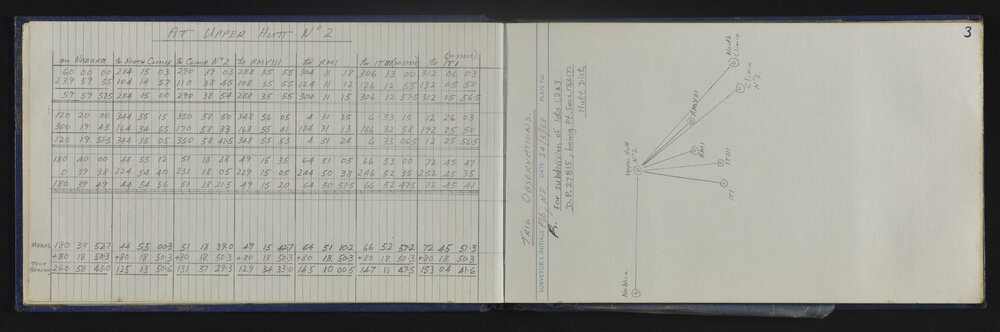 AT UPPER HUTT Nº 2
on NABHRA to NORTH CLIMIE to CLIMIE Nº2 to RMVIII to RM1 to ITIII to IT1
60 00 00 284 15 03 290 39 03 288 35 55 304 11 18 306 13 00 312 06 03
239 59 55 104 14 57 110 38 45 108 35 55 124 11 12 126 12 55 132 05 50
59 59 57.5 284 15 00 290 38 54 288 35 55 304 11 15 306 12 57.5 312 05 56.5
120 20 00 344 35 15 350 58 50 348 56 05 4 31 35 6 33 15 12 26 03
300 19 43 164 34 55 170 58 33 168 55 41 184 31 13 186 32 58 192 25 50
120 19 51.5 344 35 05 350 58 41.5 348 55 53 4 31 24 6 33 06.5 12 25 56.5
180 40 00 44 55 12 51 18 38 49 15 35 64 51 05 66 53 00 72 45 47
0 39 38 224 54 40 231 18 05 229 15 05 244 50 38 246 52 35 252 45 35
180 39 49 44 54 56 51 18 21.5 49 15 20 64 50 51.5 66 52 47.5 72 45 41
MEANS 180 39 52.7 44 55 00.3 51 18 39.0 49 15 42.7 64 51 10.2 66 52 57.2 72 45 51.3
+80 18 50.3 +80 18 50.3 +80 18 50.3 +80 18 50.3 +80 18 50.3 +80 18 50.3 +80 18 50.3
TRUE BEARING 260 58 43.0 125 13 50.6 131 37 29.3 129 34 33.0 145 10 00.5 147 11 47.5 153 04 41.6
3
TRIG OBSERVATIONS.
SURVEYOR'S INITIALS DATE 24/5/68 PLAN No.
For subdivision of lots 1,2&3
D.P. 27815, being Pt. Secs. 176&177
Hutt Dist.
North Climie
Climie Nº2
RMVIII
RM1
ITIII
IT1
Upper Hutt Nº2
Nabhra